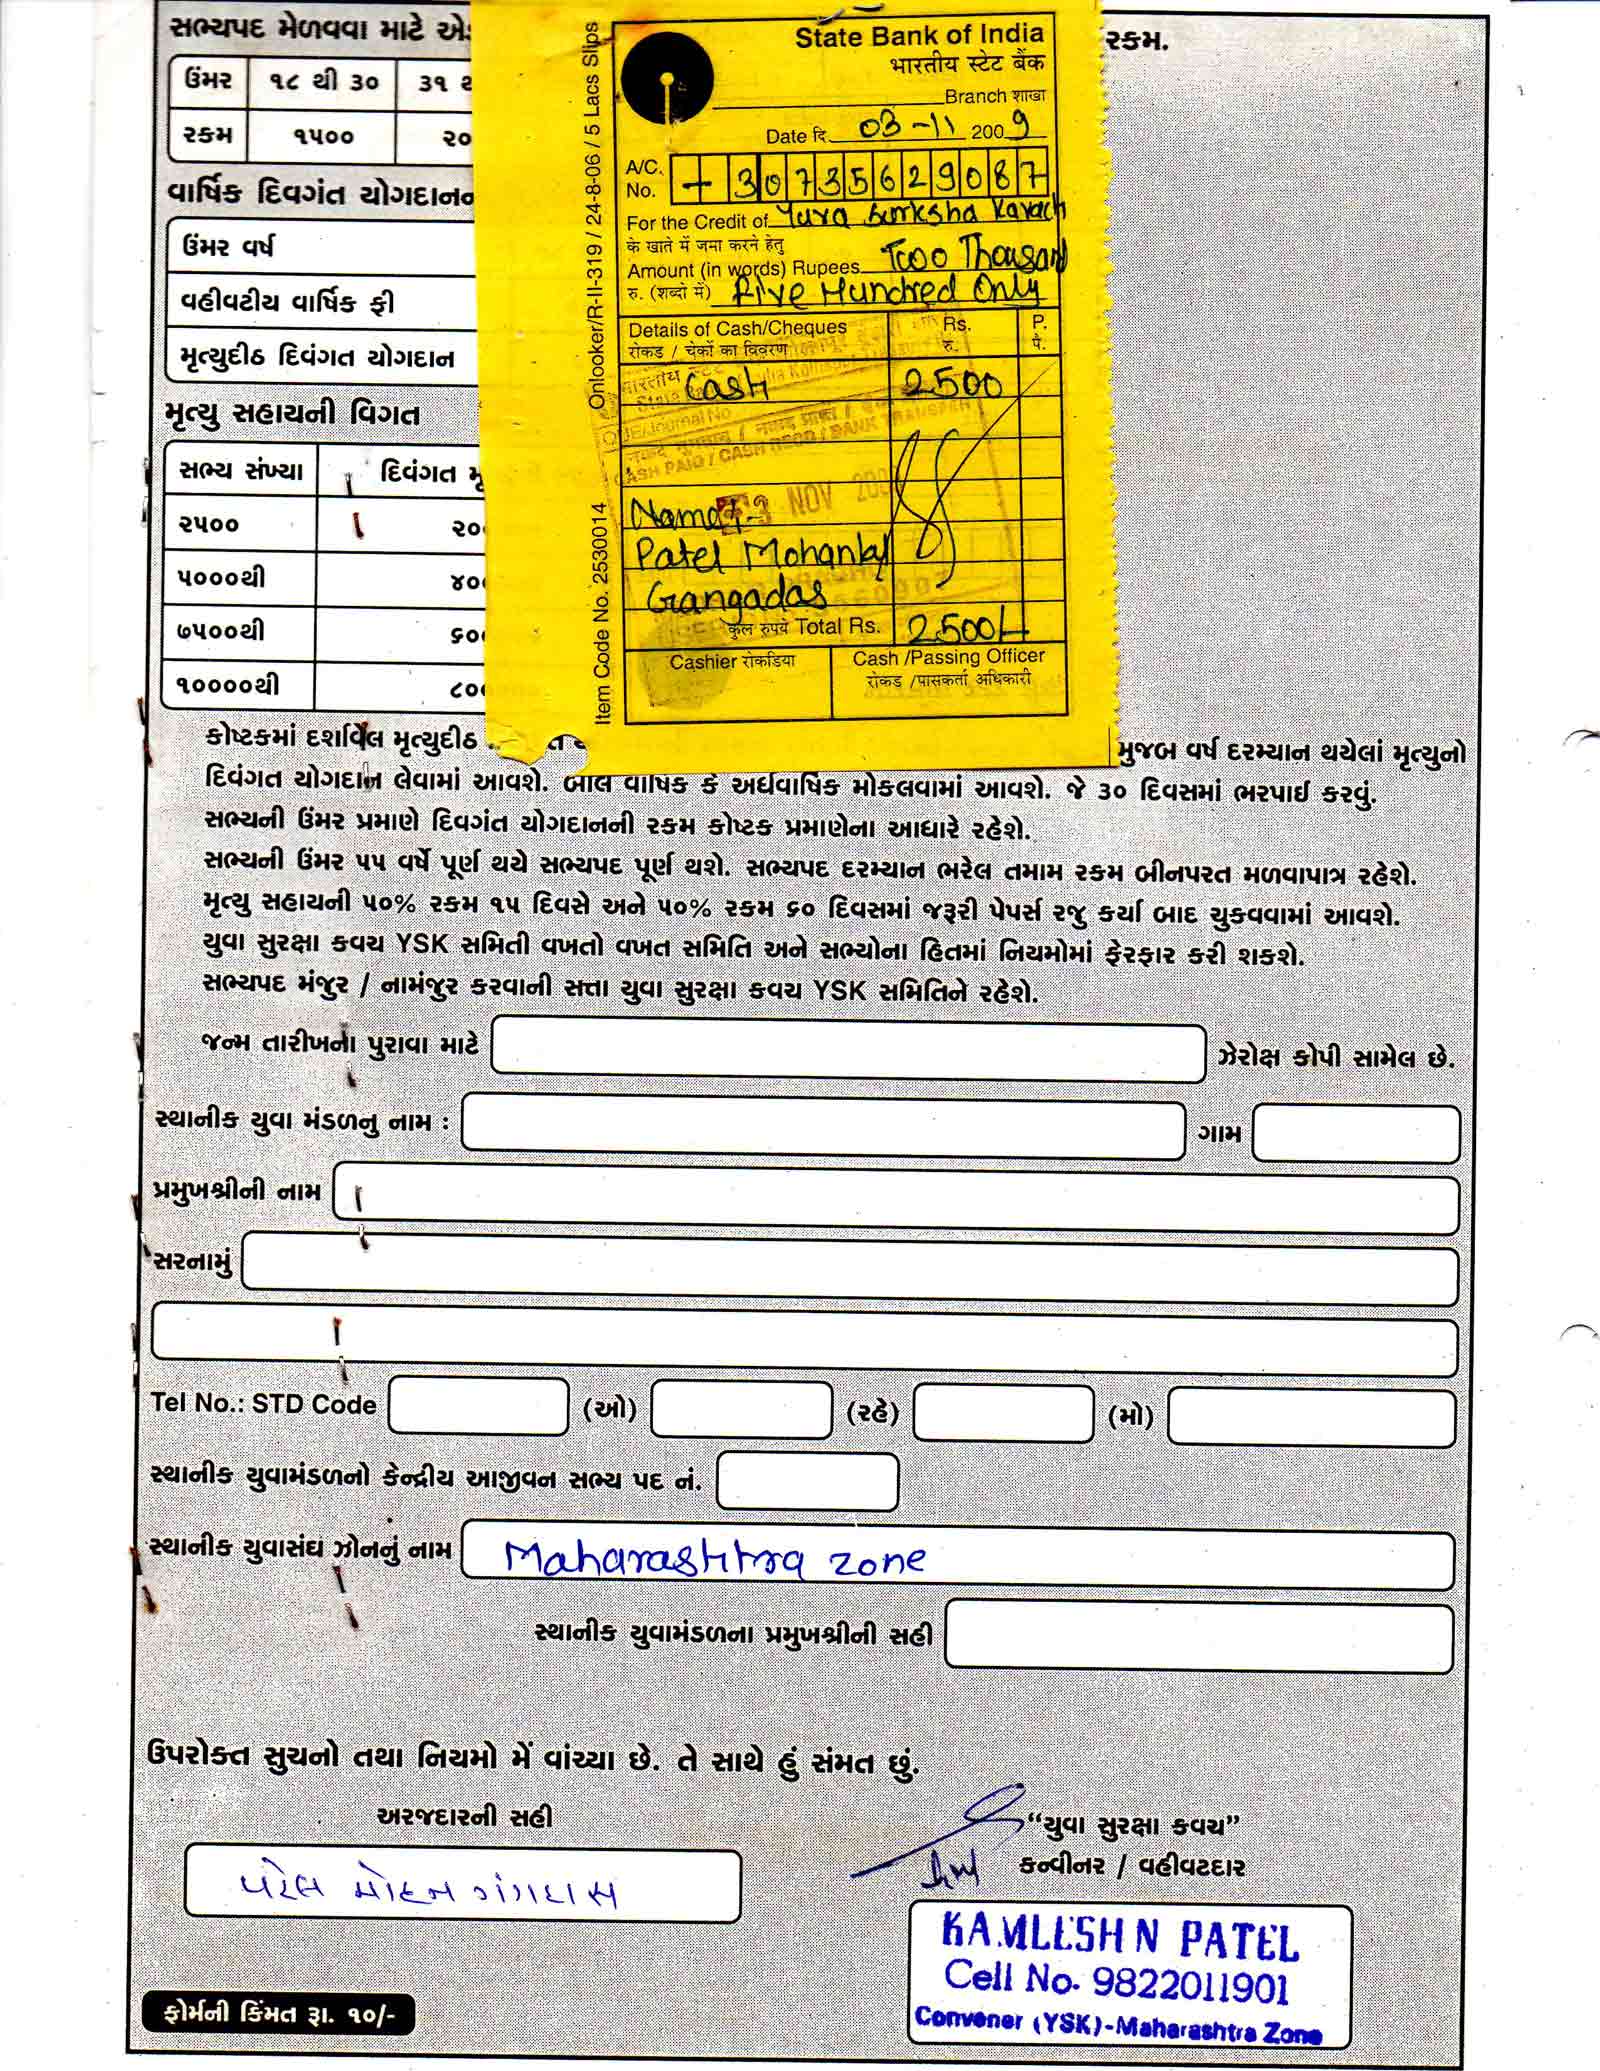 સભ્યપદ મેળવવા માટે
રકમ.
ઉંમર ૧૮ થી ૩૦ ૩૧
રકમ ૧૫૦૦ ૨૦
વાર્ષિક દિવગંત યોગદાનન
ઉંમર વર્ષ
વહીવટીય વાર્ષિક ફી
મૃત્યુદીઠ દિવંગત યોગદાન
મૃત્યુ સહાયની વિગત
સભ્ય સંખ્યા દિવંગત
૨૫૦૦ ૨૦
૫૦૦૦થી ૪૦
૭૫૦૦થી ૬૦
૧૦૦૦૦થી ૮૦
Item Code No. 2530014 Onlooker/R-II-319 / 24-8-06 / 5 Lacs Slips
State Bank of India
भारतीय स्टेट बैंक
Branch शाखा
Date दि. 03-11 2009
A/C. No. 30735629087
For the Credit of Yuva Surksha Kavach
के खाते में जमा करने हेतु
Amount (in words) Rupees Two Thousand
रु. (शब्दो में) Five Hundred Only
Details of Cash/Cheques Rs. P.
रोकड / चेकों का विवरण रु. पै.
Cash 2500
CASH PAID / CASH RECD / BANK TRANSFER
3 NOV
Name:-
Patel Mohanlal
Gangadas
कुल रुपये Total Rs. 2500/-
Cashier रोकडिया Cash /Passing Officer
रोकड /पासकर्ता अधिकारी
કોષ્ટકમાં દર્શાવેલ મૃત્યુદીઠ
મુજબ વર્ષ દરમ્યાન થયેલાં મૃત્યુનો
દિવંગત યોગદાન લેવામાં આવશે. બીલ વાર્ષિક કે અર્ધવાર્ષિક મોકલવામાં આવશે. જે ૩૦ દિવસમાં ભરપાઈ કરવું.
સભ્યની ઉંમર પ્રમાણે દિવગંત યોગદાનની રકમ કોષ્ટક પ્રમાણેના આધારે રહેશે.
સભ્યની ઉંમર ૫૫ વર્ષે પૂર્ણ થયે સભ્યપદ પૂર્ણ થશે. સભ્યપદ દરમ્યાન ભરેલ તમામ રકમ બીનપરત મળવાપાત્ર રહેશે.
મૃત્યુ સહાયની ૫૦% રકમ ૧૫ દિવસે અને ૫૦% રકમ ૬૦ દિવસમાં જરૂરી પેપર્સ રજુ કર્યા બાદ ચુકવવામાં આવશે.
યુવા સુરક્ષા કવચ YSK સમિતી વખતો વખત સમિતિ અને સભ્યોના હિતમાં નિયમોમાં ફેરફાર કરી શકશે.
સભ્યપદ મંજુર / નામંજુર કરવાની સત્તા યુવા સુરક્ષા કવચ YSK સમિતિને રહેશે.
જન્મ તારીખના પુરાવા માટે ઝેરોક્ષ કોપી સામેલ છે.
સ્થાનીક યુવા મંડળનુ નામ : ગામ
પ્રમુખશ્રીની નામ
સરનામું
Tel No.: STD Code (ઓ) (રહે) (મો)
સ્થાનીક યુવામંડળનો કેન્દ્રીય આજીવન સભ્ય પદ નં.
સ્થાનીક યુવાસંઘ ઝોનનું નામ Maharashtra zone
સ્થાનીક યુવામંડળના પ્રમુખશ્રીની સહી
ઉપરોક્ત સુચનો તથા નિયમો મેં વાંચ્યા છે. તે સાથે હું સંમત છું.
અરજદારની સહી
પટેલ મોહન ગંગદાસ
“યુવા સુરક્ષા કવચ”
કન્વીનર / વહીવટદાર
KAMLESH N PATEL
Cell No. 9822011901
Convener (YSK)-Maharashtra Zone
ફોર્મની કિંમત રૂા. ૧૦/-